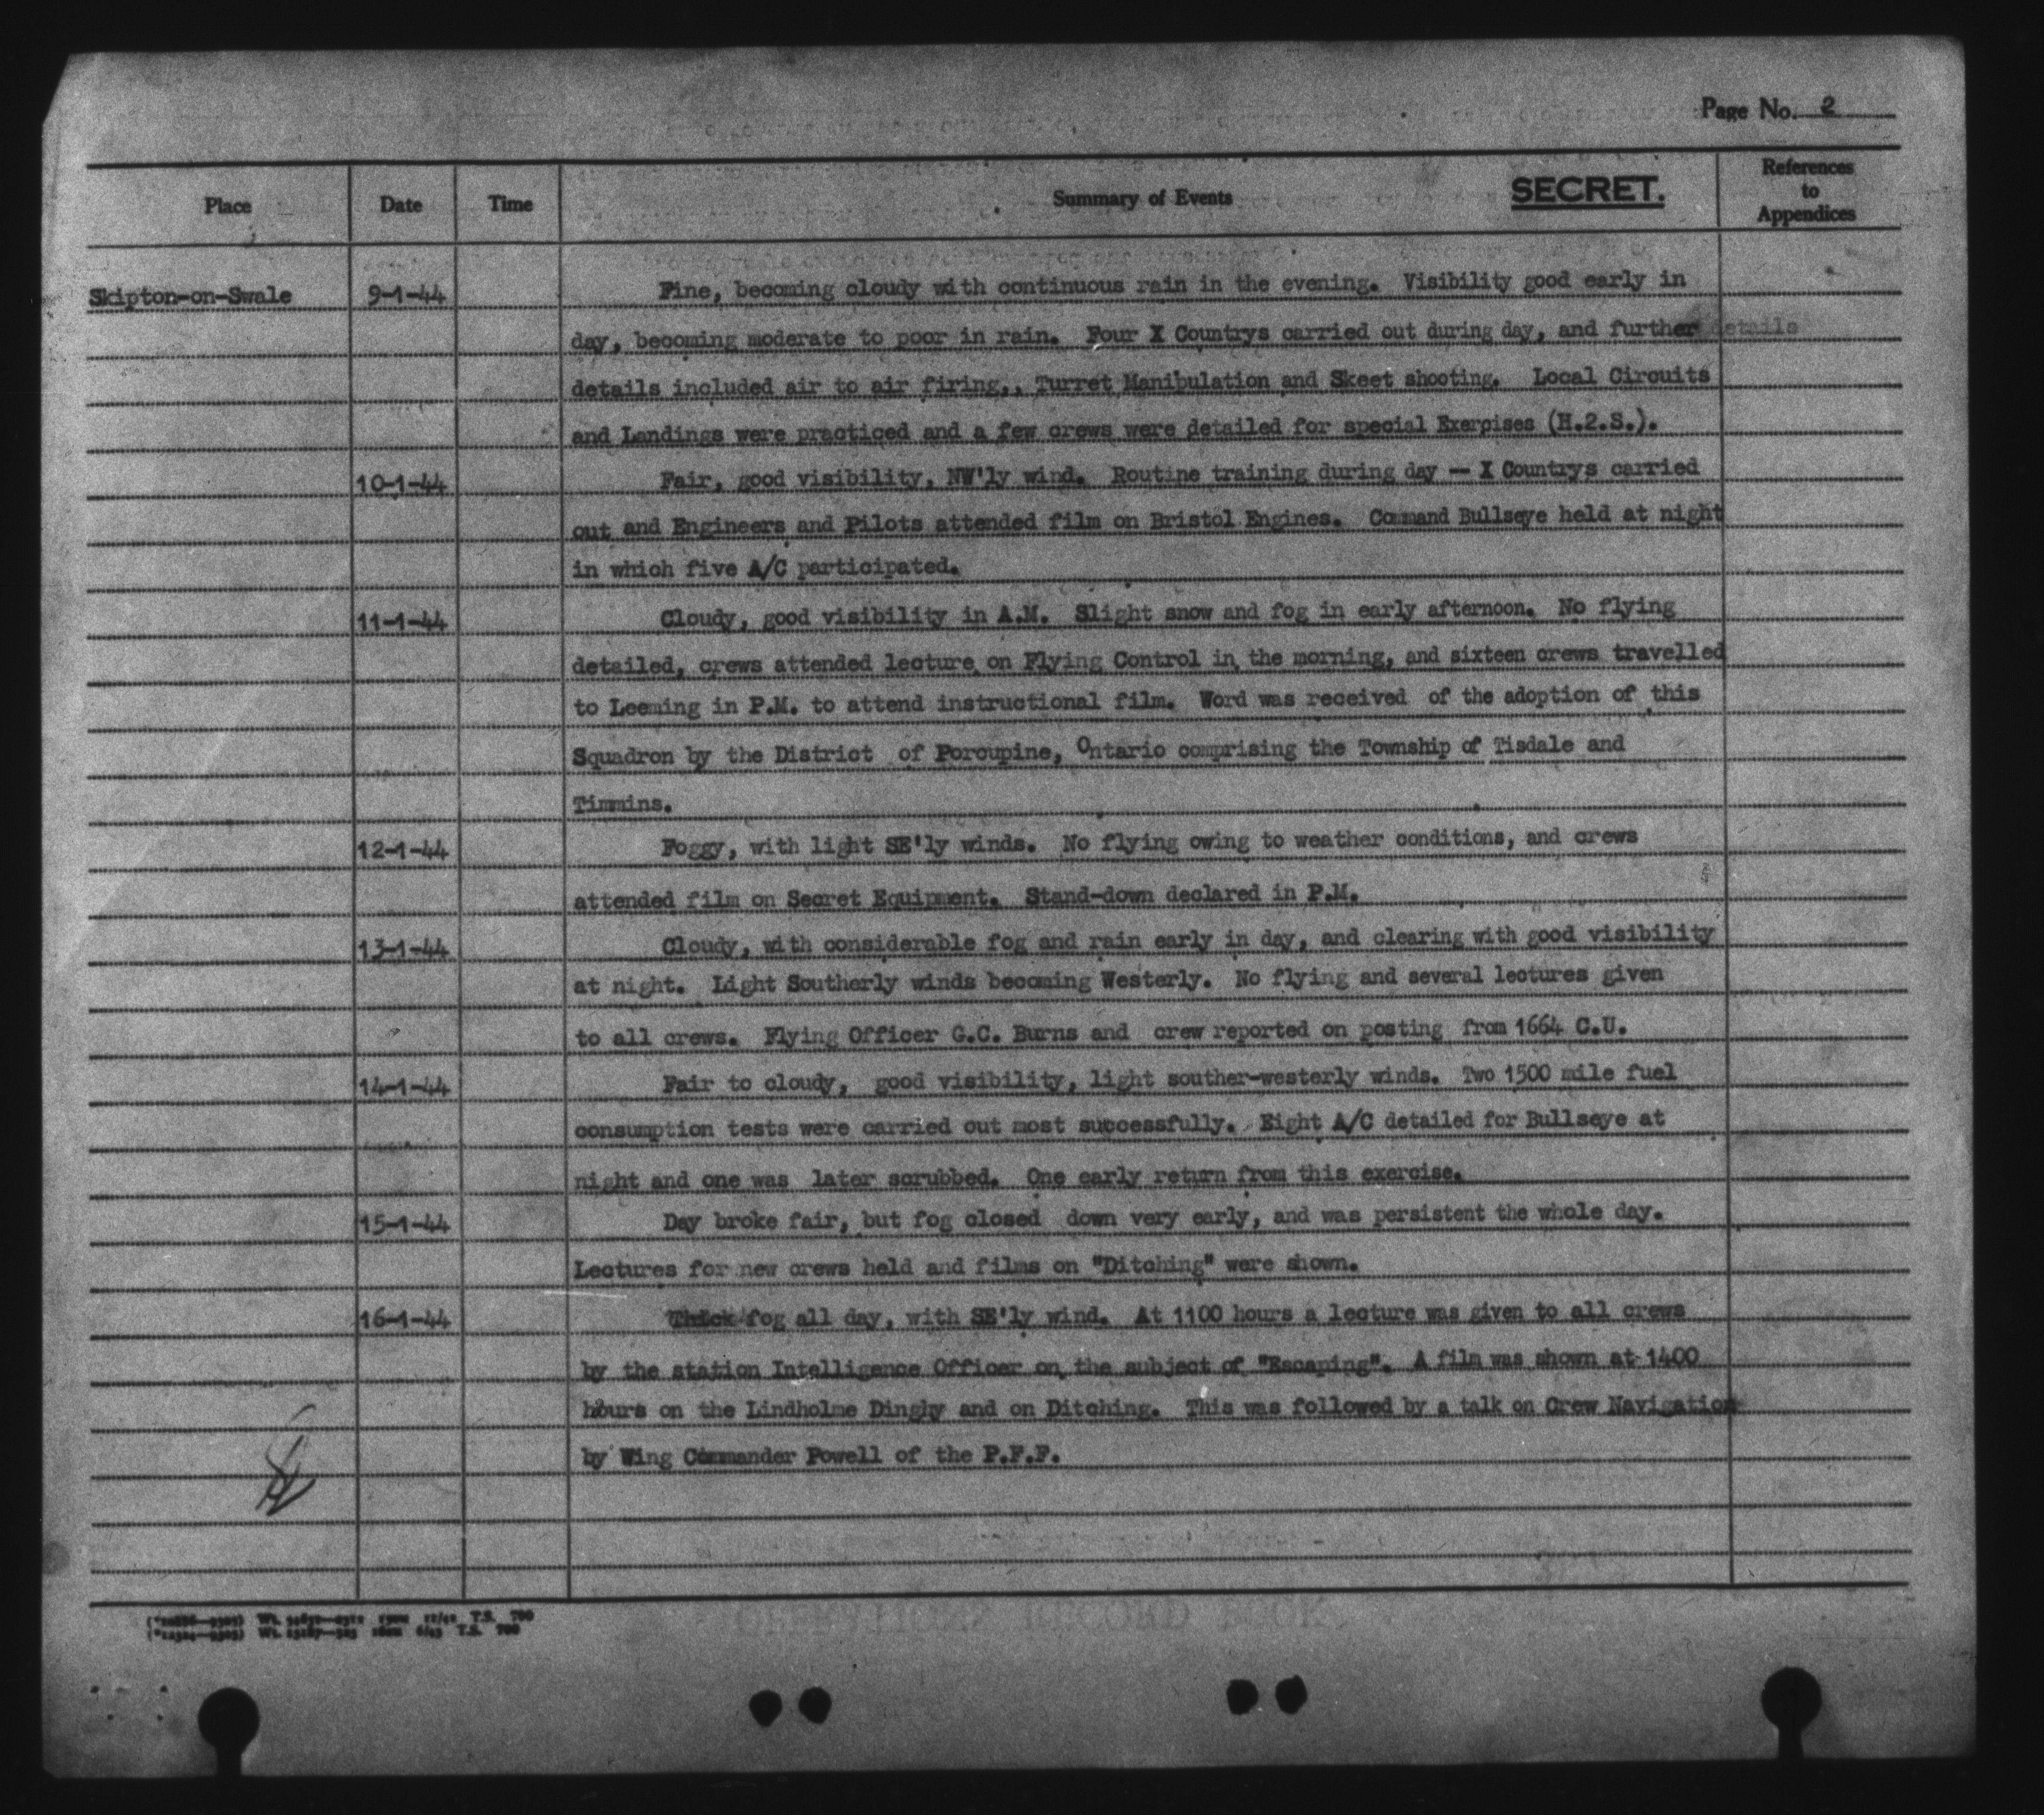 Page No. 2
Place Date Time Summary of Events SECRET. References to Appendices
Skipton-on-Swale 9-1-44 Fine, becoming cloudy with continuous rain in the evening. Visibility good early in
day, becoming moderate to poor in rain. Four X Countrys carried out during day, and further details
details included air to air firing,, Turret Manibulation and Skeet shooting. Local Circuits
and Landings were practiced and a few crews were detailed for special Exercises (H.2.S.).
10-1-44 Fair, good visibility, NW'ly wind. Routine training during day -- X Countrys carried
out and Engineers and Pilots attended film on Bristol Engines. Command Bullseye held at night
in which five A/C participated.
11-1-44 Cloudy, good visibility in A.M. Slight snow and fog in early afternoon. No flying
detailed, crews attended lecture on Flying Control in the morning, and sixteen crews travelled
to Leeming in P.M. to attend instructional film. Word was received of the adoption of this
Squadron by the District of Porcupine, Ontario comprising the Township of Tisdale and
Timmins.
12-1-44 Foggy, with light SE'ly winds. No flying owing to weather conditions, and crews
attended film on Secret Equipment. Stand-down declared in P.M.
13-1-44 Cloudy, with considerable fog and rain early in day, and clearing with good visibility
at night. Light Southerly winds becoming Westerly. No flying and several lectures given
to all crews. Flying Officer G.C. Burns and crew reported on posting from 1664 C.U.
14-1-44 Fair to cloudy, good visibility, light souther-westerly winds. Two 1500 mile fuel
consumption tests were carried out most successfully. Eight A/C detailed for Bullseye at
night and one was later scrubbed. One early return from this exercise.
15-1-44 Day broke fair, but fog closed down very early, and was persistent the whole day.
Lectures for new crews held and films on "Ditching" were shown.
16-1-44 Thick fog all day, with SE'ly wind. At 1100 hours a lecture was given to all crews
by the station Intelligence Officer on the subject of "Escaping". A film was shown at 1400
hours on the Lindholme Dinghy and on Ditching. This was followed by a talk on Crew Navigation
by Wing Commander Powell of the P.F.F.
T.S. 700
T.S. 700